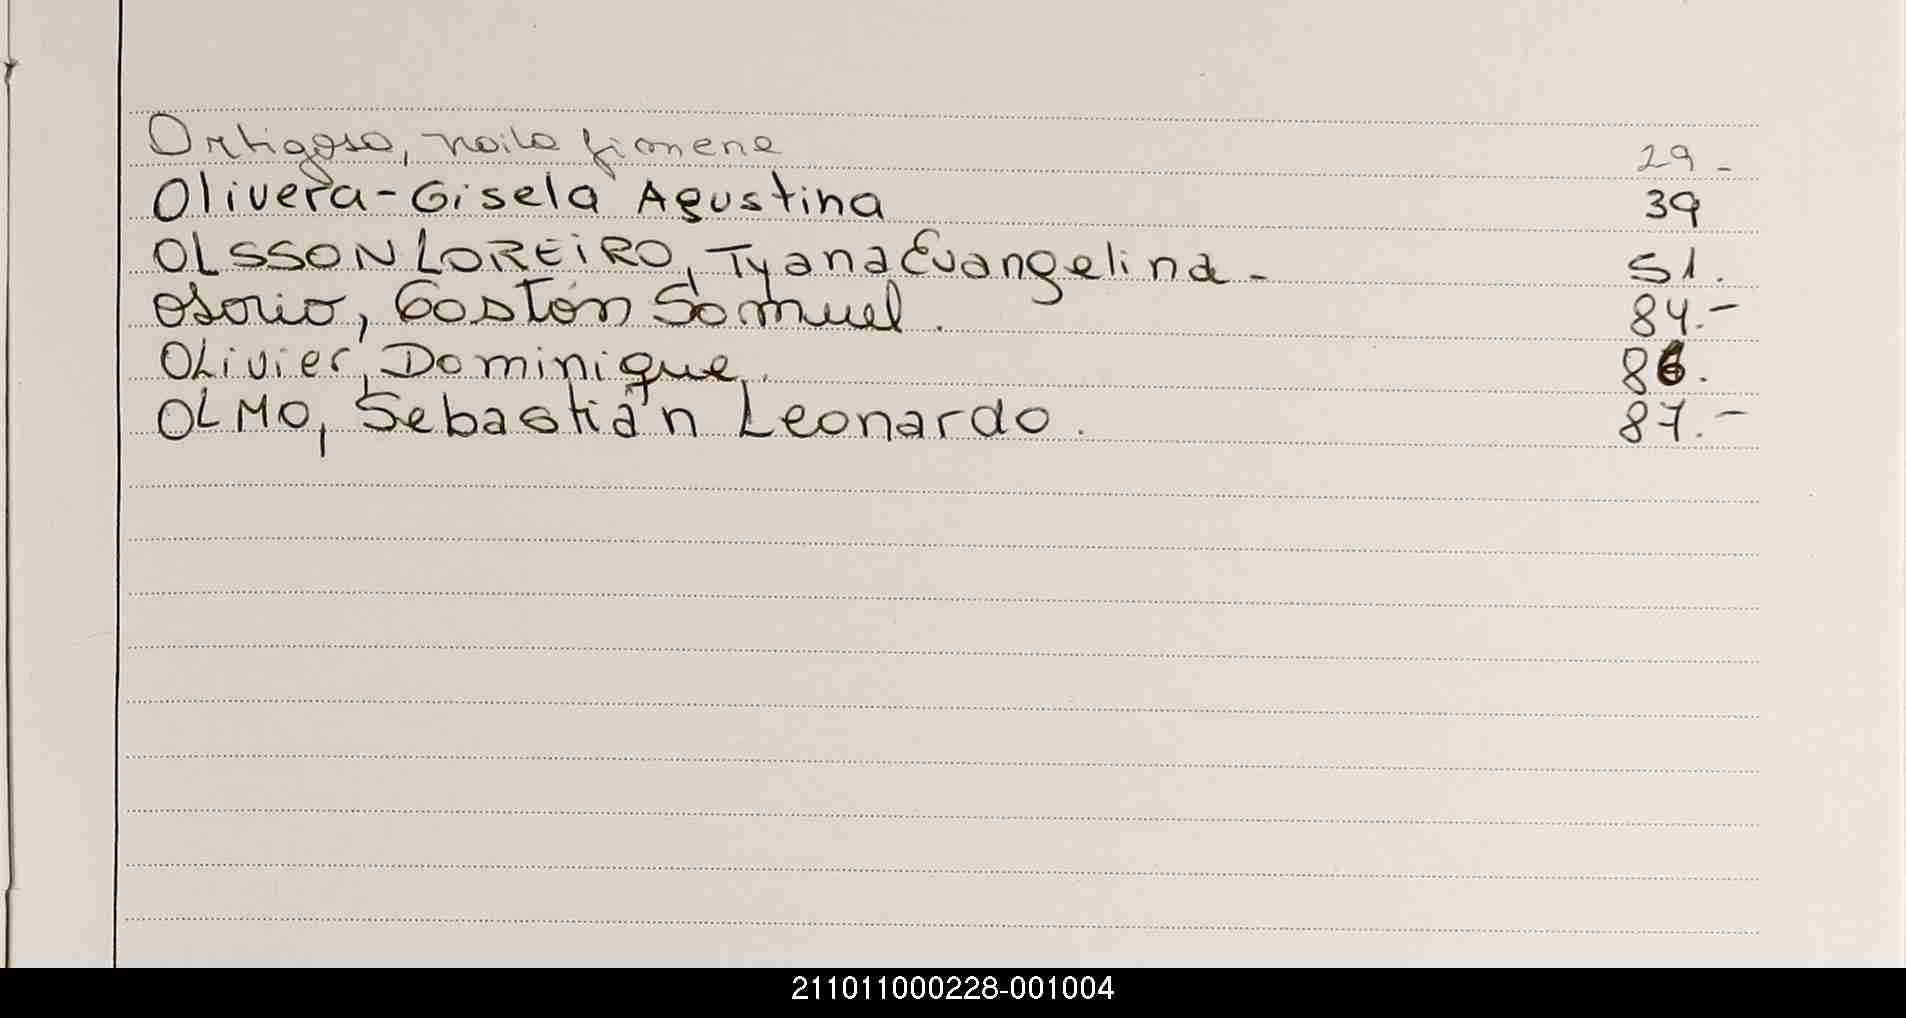 Ortigosa, Naila Jimena 29 -
Olivera - Gisela Agustina 39
OLSSON LOREIRO, Tyana Evangelina - 51.
Osorio, Gastón Samuel. 84.-
OLivier, Dominique. 86.
OLMO, Sebastián Leonardo. 87.-
211011000228-001004